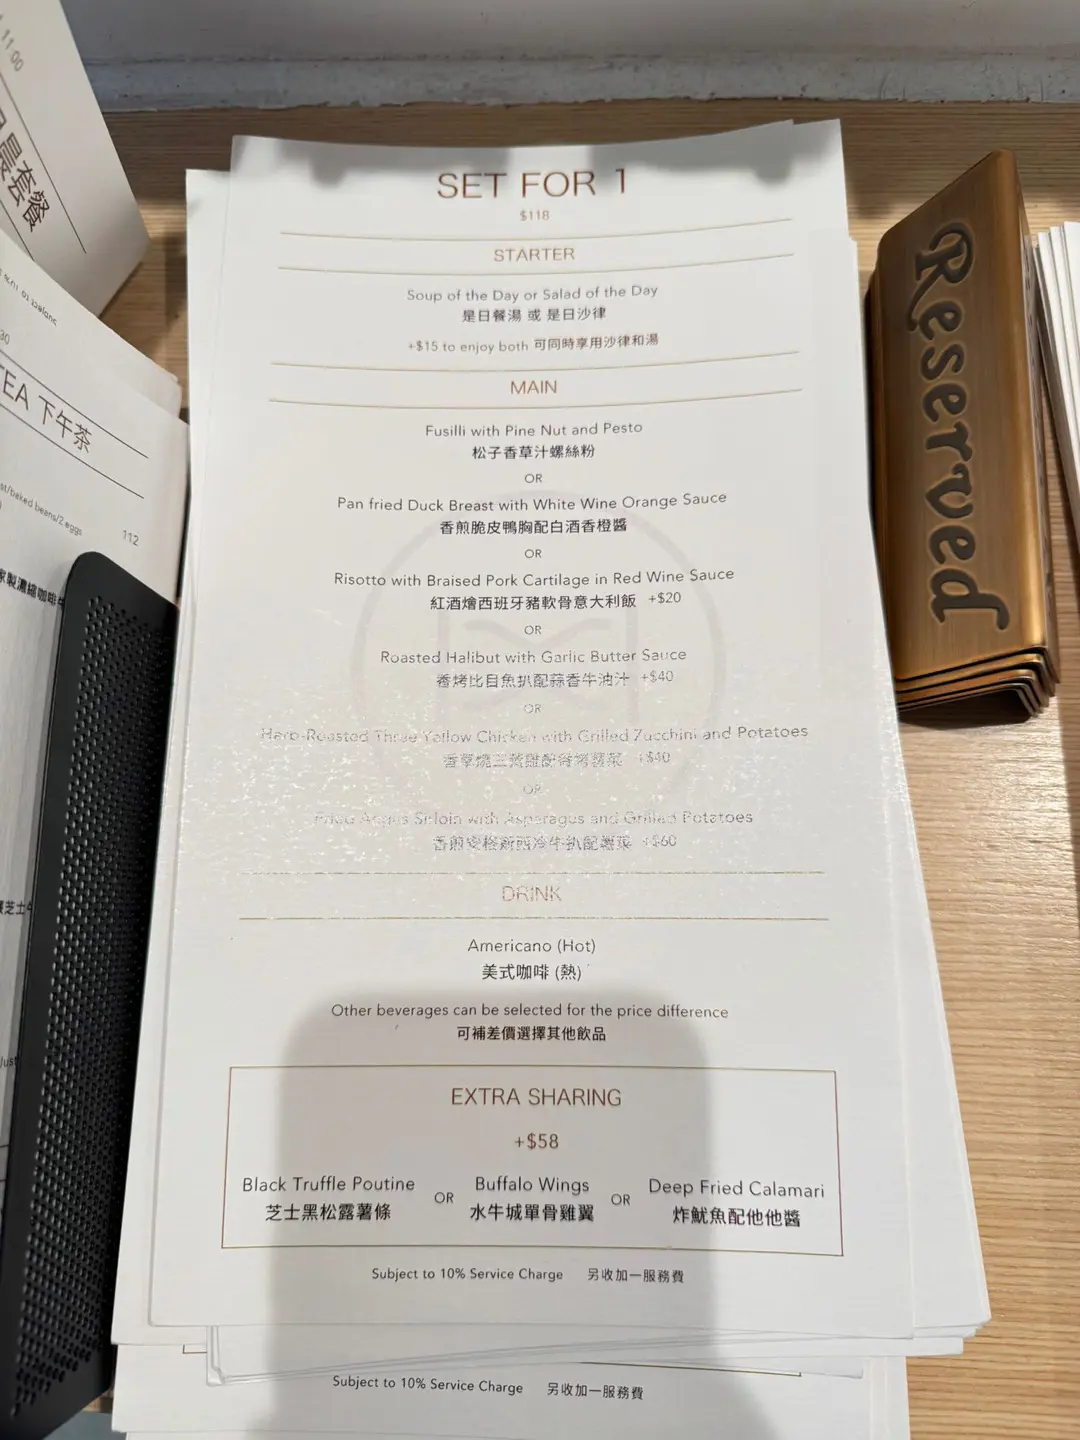 11:00
晨套餐
30
TEA 下午茶
st/baked beans/2 eggs
112
家製濃縮咖啡
芝士
Just
SET FOR 1
$118
STARTER
Soup of the Day or Salad of the Day
是日餐湯 或 是日沙律
+$15 to enjoy both 可同時享用沙律和湯
MAIN
Fusilli with Pine Nut and Pesto
松子香草汁螺絲粉
OR
Pan fried Duck Breast with White Wine Orange Sauce
香煎脆皮鴨胸配白酒香橙醬
OR
Risotto with Braised Pork Cartilage in Red Wine Sauce
紅酒燴西班牙豬軟骨意大利飯 +$20
OR
Roasted Halibut with Garlic Butter Sauce
香烤比目魚扒配蒜香牛油汁 +$40
OR
Herb-Roasted Three Yellow Chicken with Grilled Zucchini and Potatoes
香草燒三黃雞 +$40
OR
Fried Angus Sirloin with Asparagus and Grilled Potatoes
香煎安格斯西冷牛扒配 +$60
DRINK
Americano (Hot)
美式咖啡 (熱)
Other beverages can be selected for the price difference
可補差價選擇其他飲品
EXTRA SHARING
+$58
Black Truffle Poutine
芝士黑松露薯條
OR
Buffalo Wings
水牛城單骨雞翼
OR
Deep Fried Calamari
炸魷魚配他他醬
Subject to 10% Service Charge 另收加一服務費
Subject to 10% Service Charge 另收加一服務費
Reserved